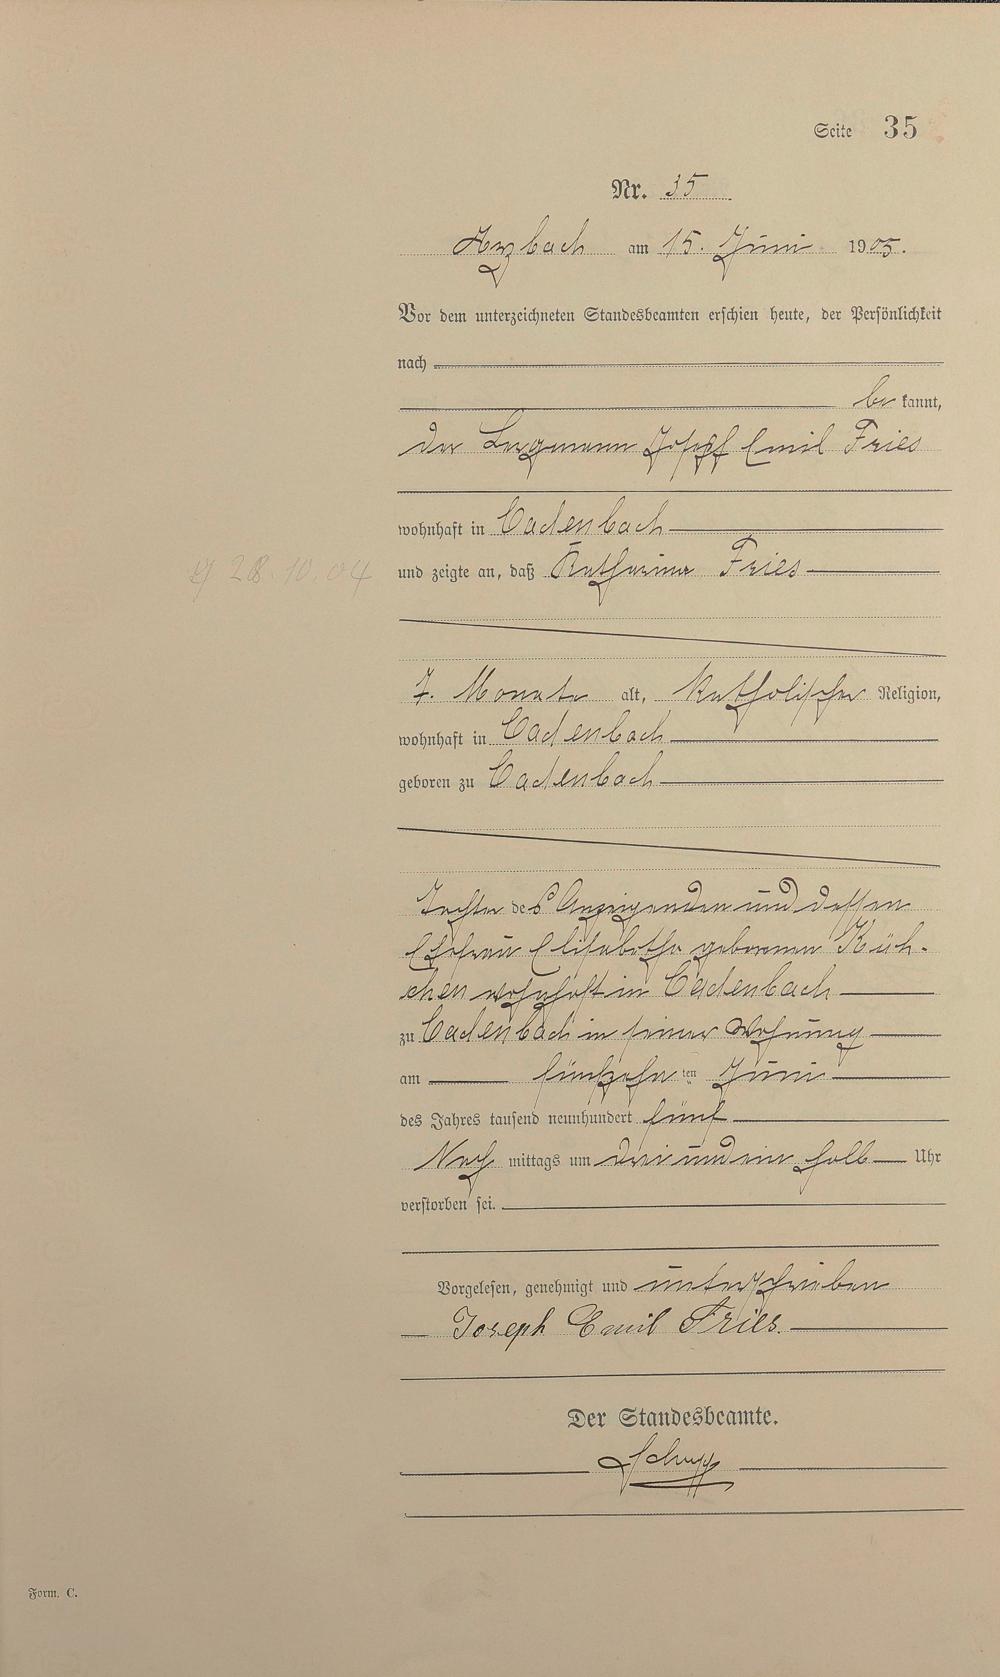 Seite 35
Nr. 35
Arzbach am 15. Juni 1905.
Vor dem unterzeichneten Standesbeamten erschien heute, der Persönlichkeit
nach
be kannt,
der Bergmann Joseph Emil Fries
wohnhaft in Cadenbach
g 28.10.04
und zeigte an, daß Katharina Fries
7. Monate alt, katholischer Religion,
wohnhaft in Cadenbach
geboren zu Cadenbach
Tochter des Anzeigenden und dessen
Ehefrau Elisabetha geborenen Küh-
chen wohnhaft in Cadenbach
zu Cadenbach in seiner Wohnung
am fünfzehnten Juni
des Jahres tausend neunhundert fünf
Nach mittags um drei und ein halb Uhr
verstorben sei.
Vorgelesen, genehmigt und unterschrieben
Joseph Emil Fries.
Der Standesbeamte.
Form. C.